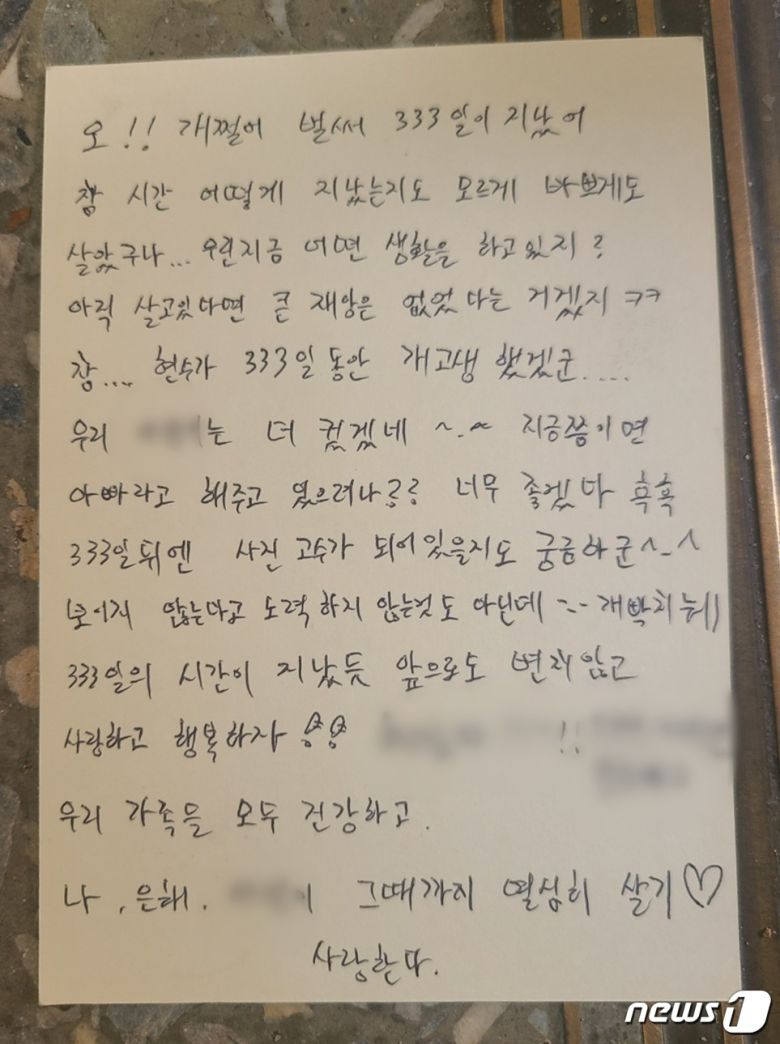 오!! 개쩔어 벌써 333일이 지났어
참 시간 어떻게 지났는지도 모르게 바쁘게도
살았구나... 우린지금 어떤 생활을 하고있지?
아직 살고있다면 큰 재앙은 없었다는 거겠지 ㅋㅋ
참.... 현수가 333일동안 개고생 했겠군.....
우리 는 더 컸겠네 ~.~ 지금쯤이면
아빠라고 해주고 있으려나?? 너무 좋겠다 흑흑
333일뒤엔 사진 고수가 되어있을지도 궁금하군^-^
보이지 않는다고 노력하지 않는것도 아닌데 --
333일의 시간이 지났듯 앞으로도 변치않고
사랑하고 행복하자 !!
우리 가족들 모두 건강하고.
나, 은해, 이 그때까지 열심히 살기♡
사랑한다.
news1